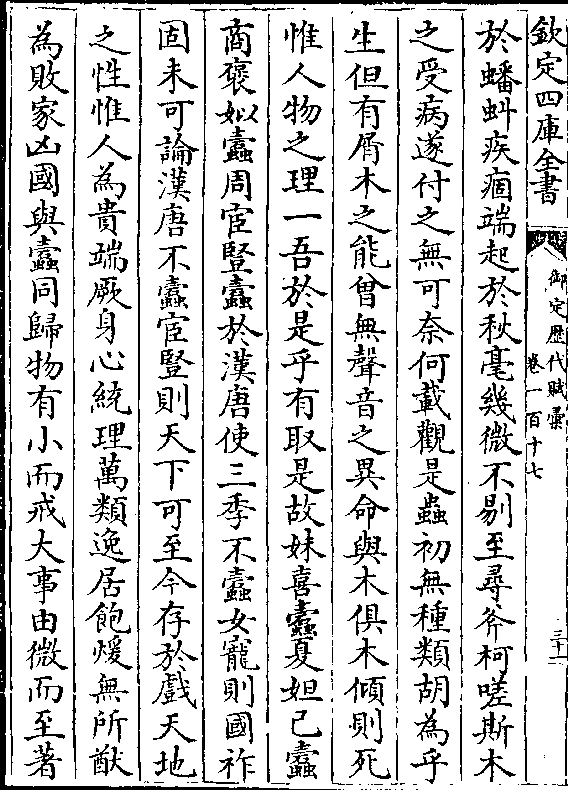 欽定四庫全書
御定歴代賦彙
卷一百十七
三十一
於蟠蚪疾痼端起於秋毫幾微不剔至尋斧柯嗟斯木
之受病遂付之無可奈何載觀是蟲初無種類胡為乎
生但有屑木之能曾無聲音之異命與木俱木傾則死
惟人物之理一吾於是乎有取是故妹喜蠧夏妲己蠧
商褒姒蠧周宦豎蠧於漢唐使三季不蠧女寵則國祚
固未可論漢唐不蠧宦豎則天下可至今存於戲天地
之性惟人為貴端厥身心統理萬類逸居飽煖無所猷
為敗家凶國與蠧同歸物有小而戒大事由微而至著